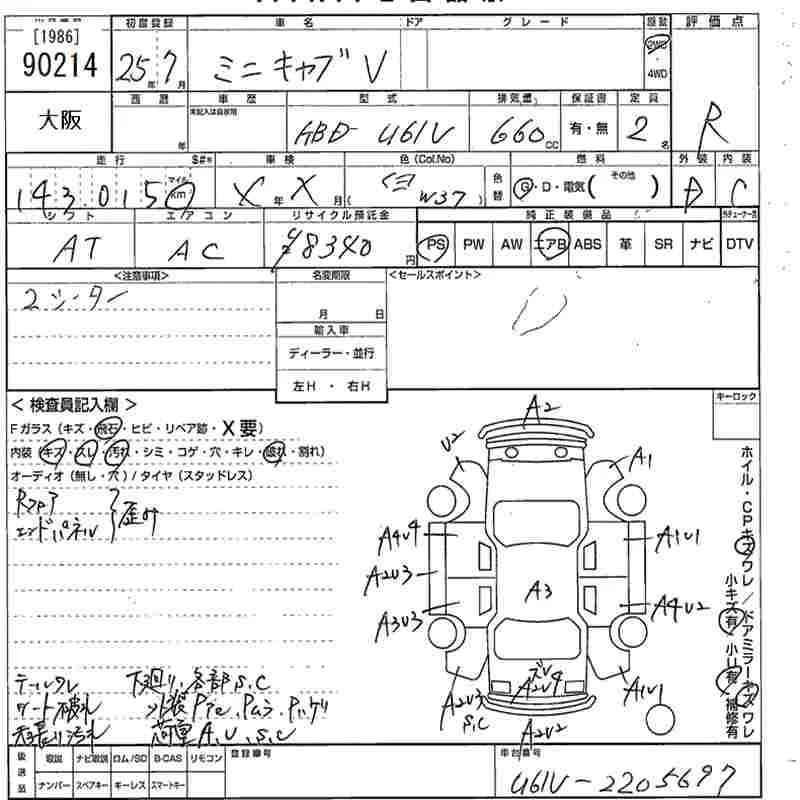 [1986]
90214
初度登録
25年7月
車名
ミニキャブV
ドア
グレード
駆動
2WD
4WD
評価点
R
大阪
西暦
年
車歴
未記入は自家用
型式
HBD-U61V
排気量
660cc
保証書
有・無
定員
2名
走行
S#※
143.015
マイル
km
車検
X年X月
色(Col.No)
白 W37
色替
燃料
G・D・電気(その他)
外装
D
内装
C
シフト
AT
エアコン
AC
リサイクル預託金
¥8340円
純正装備品
PS
PW
AW
エアB
ABS
革
SR
ナビ
DTV
<注意事項>
2シーター
名変期限
月 日
輸入車
ディーラー・並行
左H・右H
<セールスポイント>
<検査員記入欄>
Fガラス(キズ・飛石・ヒビ・リペア跡・X要)
内装(キズ・スレ・汚れ・シミ・コゲ・穴・キレ・破れ・割れ)
オーディオ(無し・穴)/タイヤ(スタッドレス)
Rフロア
エンドパネル
歪み
キーロック
ホイル・CPキズワレ/ドアミラーキズワレ
小キズ有・小U有・補修有
A2
U2
A1
A4U4
A1U1
A2U3
A3
A3U3
A4U2
ズレ
A2U4
A2U3
S.C
A1U1
A2U2
テールワレ
シート破れ
荷室汚れ
下廻り、各部S.C
荷室A.U.S.C
後送品
取説
ナビ取説
ロム/SD
B-CAS
リモコン
ナンバー
スペアキー
キーレス
スマートキー
登録番号
車台番号
U61V-2205697